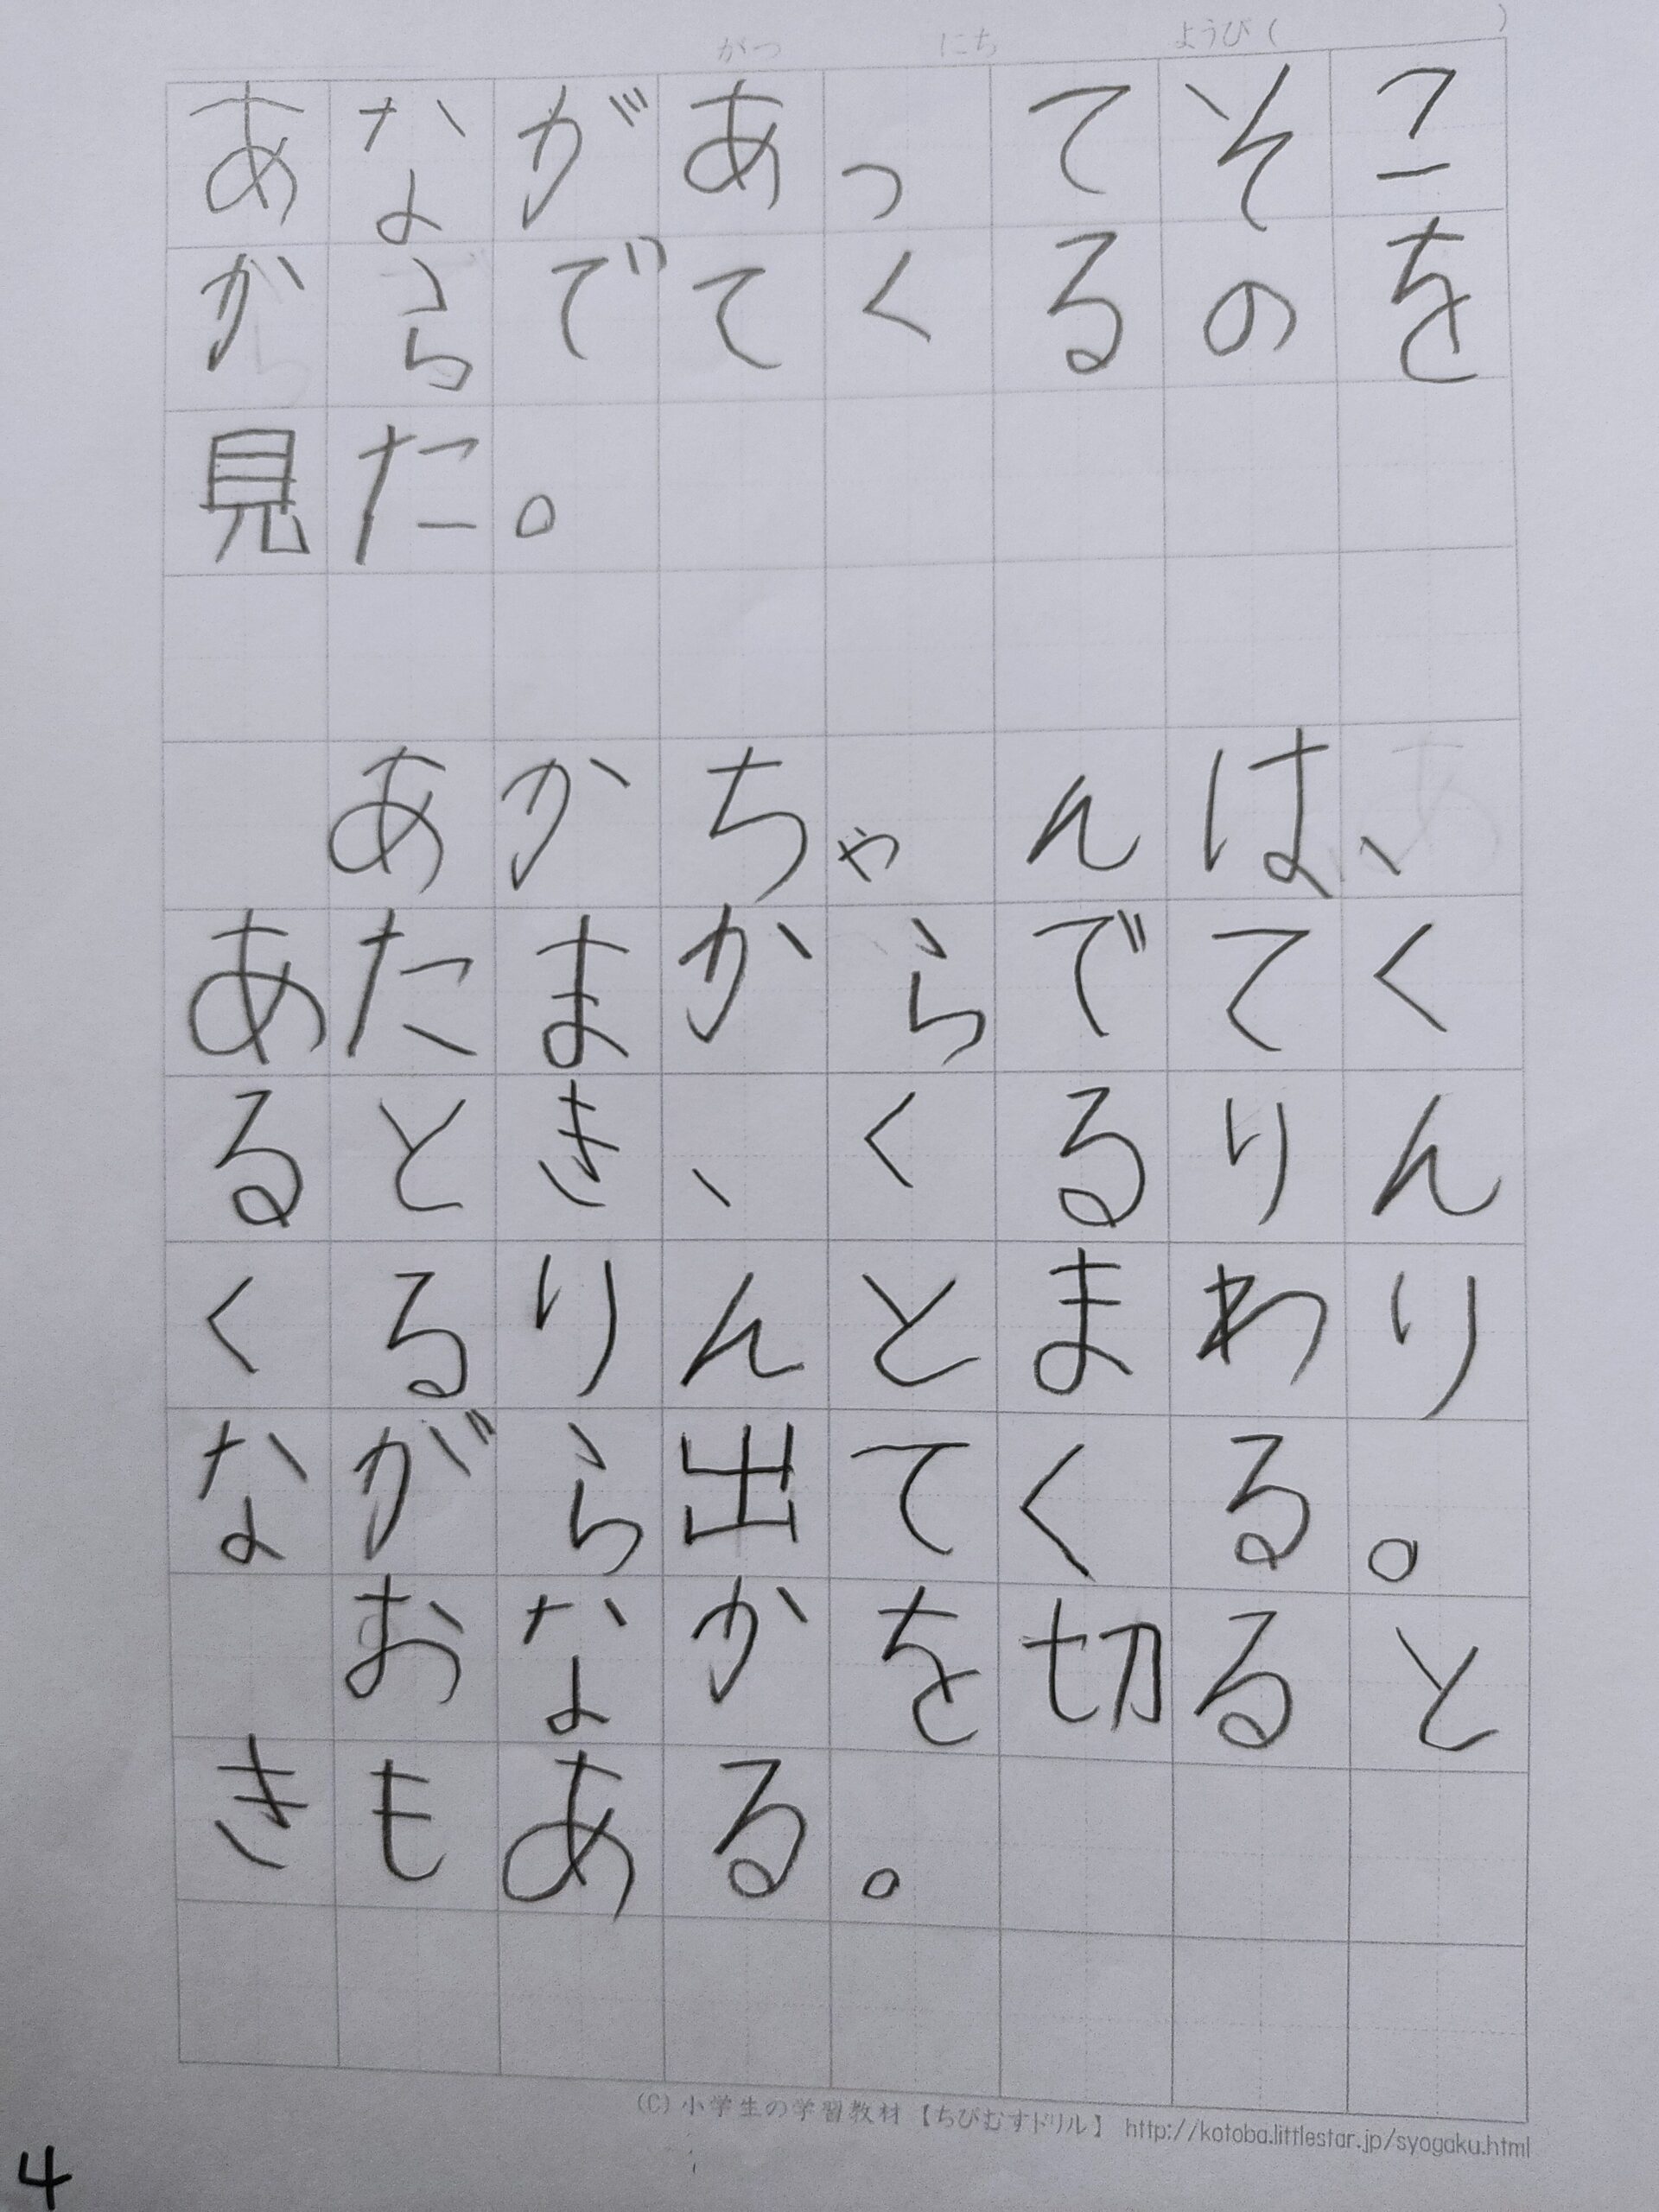 がつ にち ようび( )
あながあってそこ
からでてくるのを
見た。
あかちゃんは、
あたまからでてく
るとき、くるりん
くるりんとまわり
ながら出てくる。
おなかを切ると
きもある。
(C) 小学生の学習教材【ちびむすドリル】 http://kotoba.littlestar.jp/syogaku.html
4